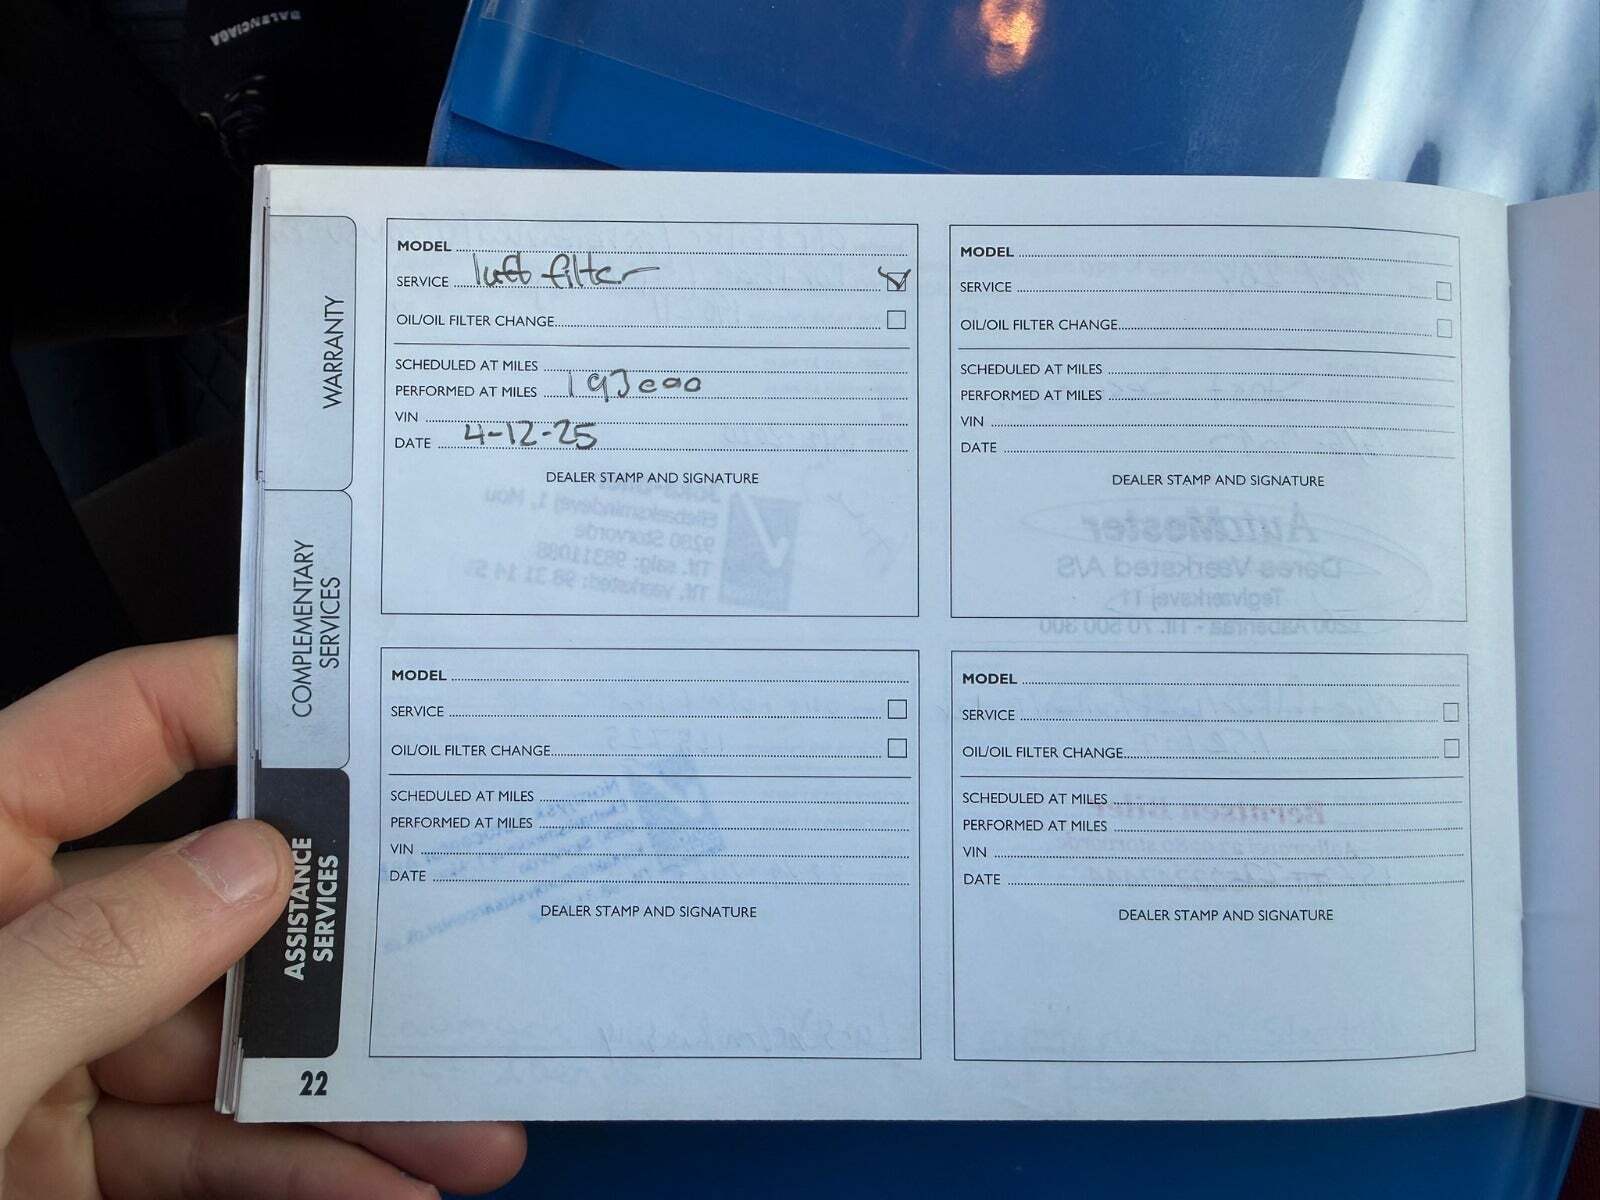 BALENCIAGA
WARRANTY
COMPLEMENTARY
SERVICES
ASSISTANCE
SERVICES
22
MODEL
SERVICE luft filter
OIL/OIL FILTER CHANGE
SCHEDULED AT MILES
PERFORMED AT MILES 193000
VIN
DATE 4-12-25
DEALER STAMP AND SIGNATURE
MODEL
SERVICE
OIL/OIL FILTER CHANGE
SCHEDULED AT MILES
PERFORMED AT MILES
VIN
DATE
DEALER STAMP AND SIGNATURE
AutoMester
Deres Værksted A/S
Teglværksvej 11
MODEL
SERVICE
OIL/OIL FILTER CHANGE
SCHEDULED AT MILES
PERFORMED AT MILES
VIN
DATE
DEALER STAMP AND SIGNATURE
MODEL
SERVICE
OIL/OIL FILTER CHANGE
SCHEDULED AT MILES
PERFORMED AT MILES
VIN
DATE
DEALER STAMP AND SIGNATURE